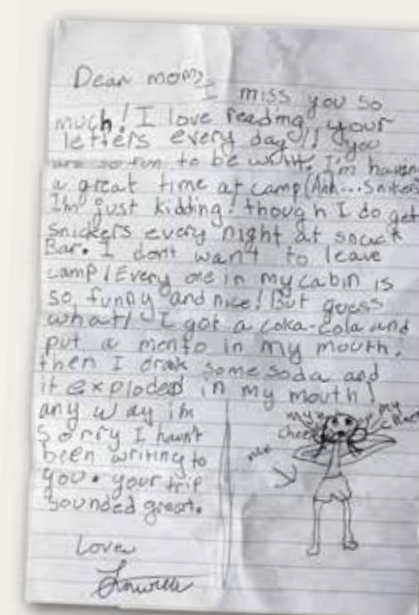 Dear mom,
I miss you so
much! I love reading your
letters every day!! you
are so fun to be with. I'm having
a great time at camp (And...
I'm just kidding! though I do get
snickers every night at snack
Bar. I dont want to leave
camp! Every one in my cabin is
so funny and nice! But guess
what! I got a coka-cola and
put a mento in my mouth!
then I drak some soda and
it exploded in my mouth!
any way im
sorry I havn't
been writing to
you. your trip
sounded great.
Love
my
cheek
my
cheek
me